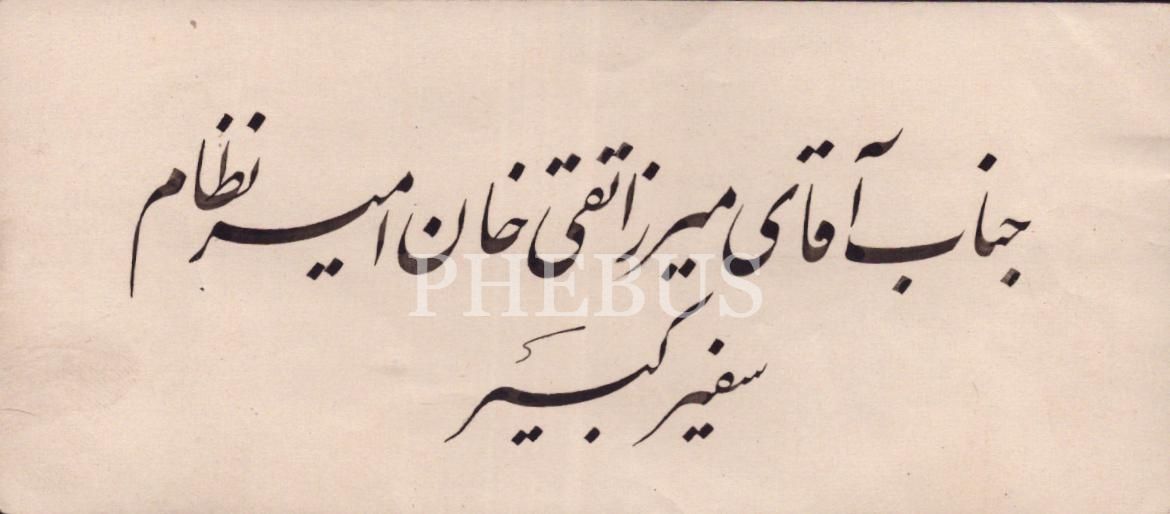 جناب آقای میرزا تقی خان امیر نظام
سفیر کبیر
PHEBUS